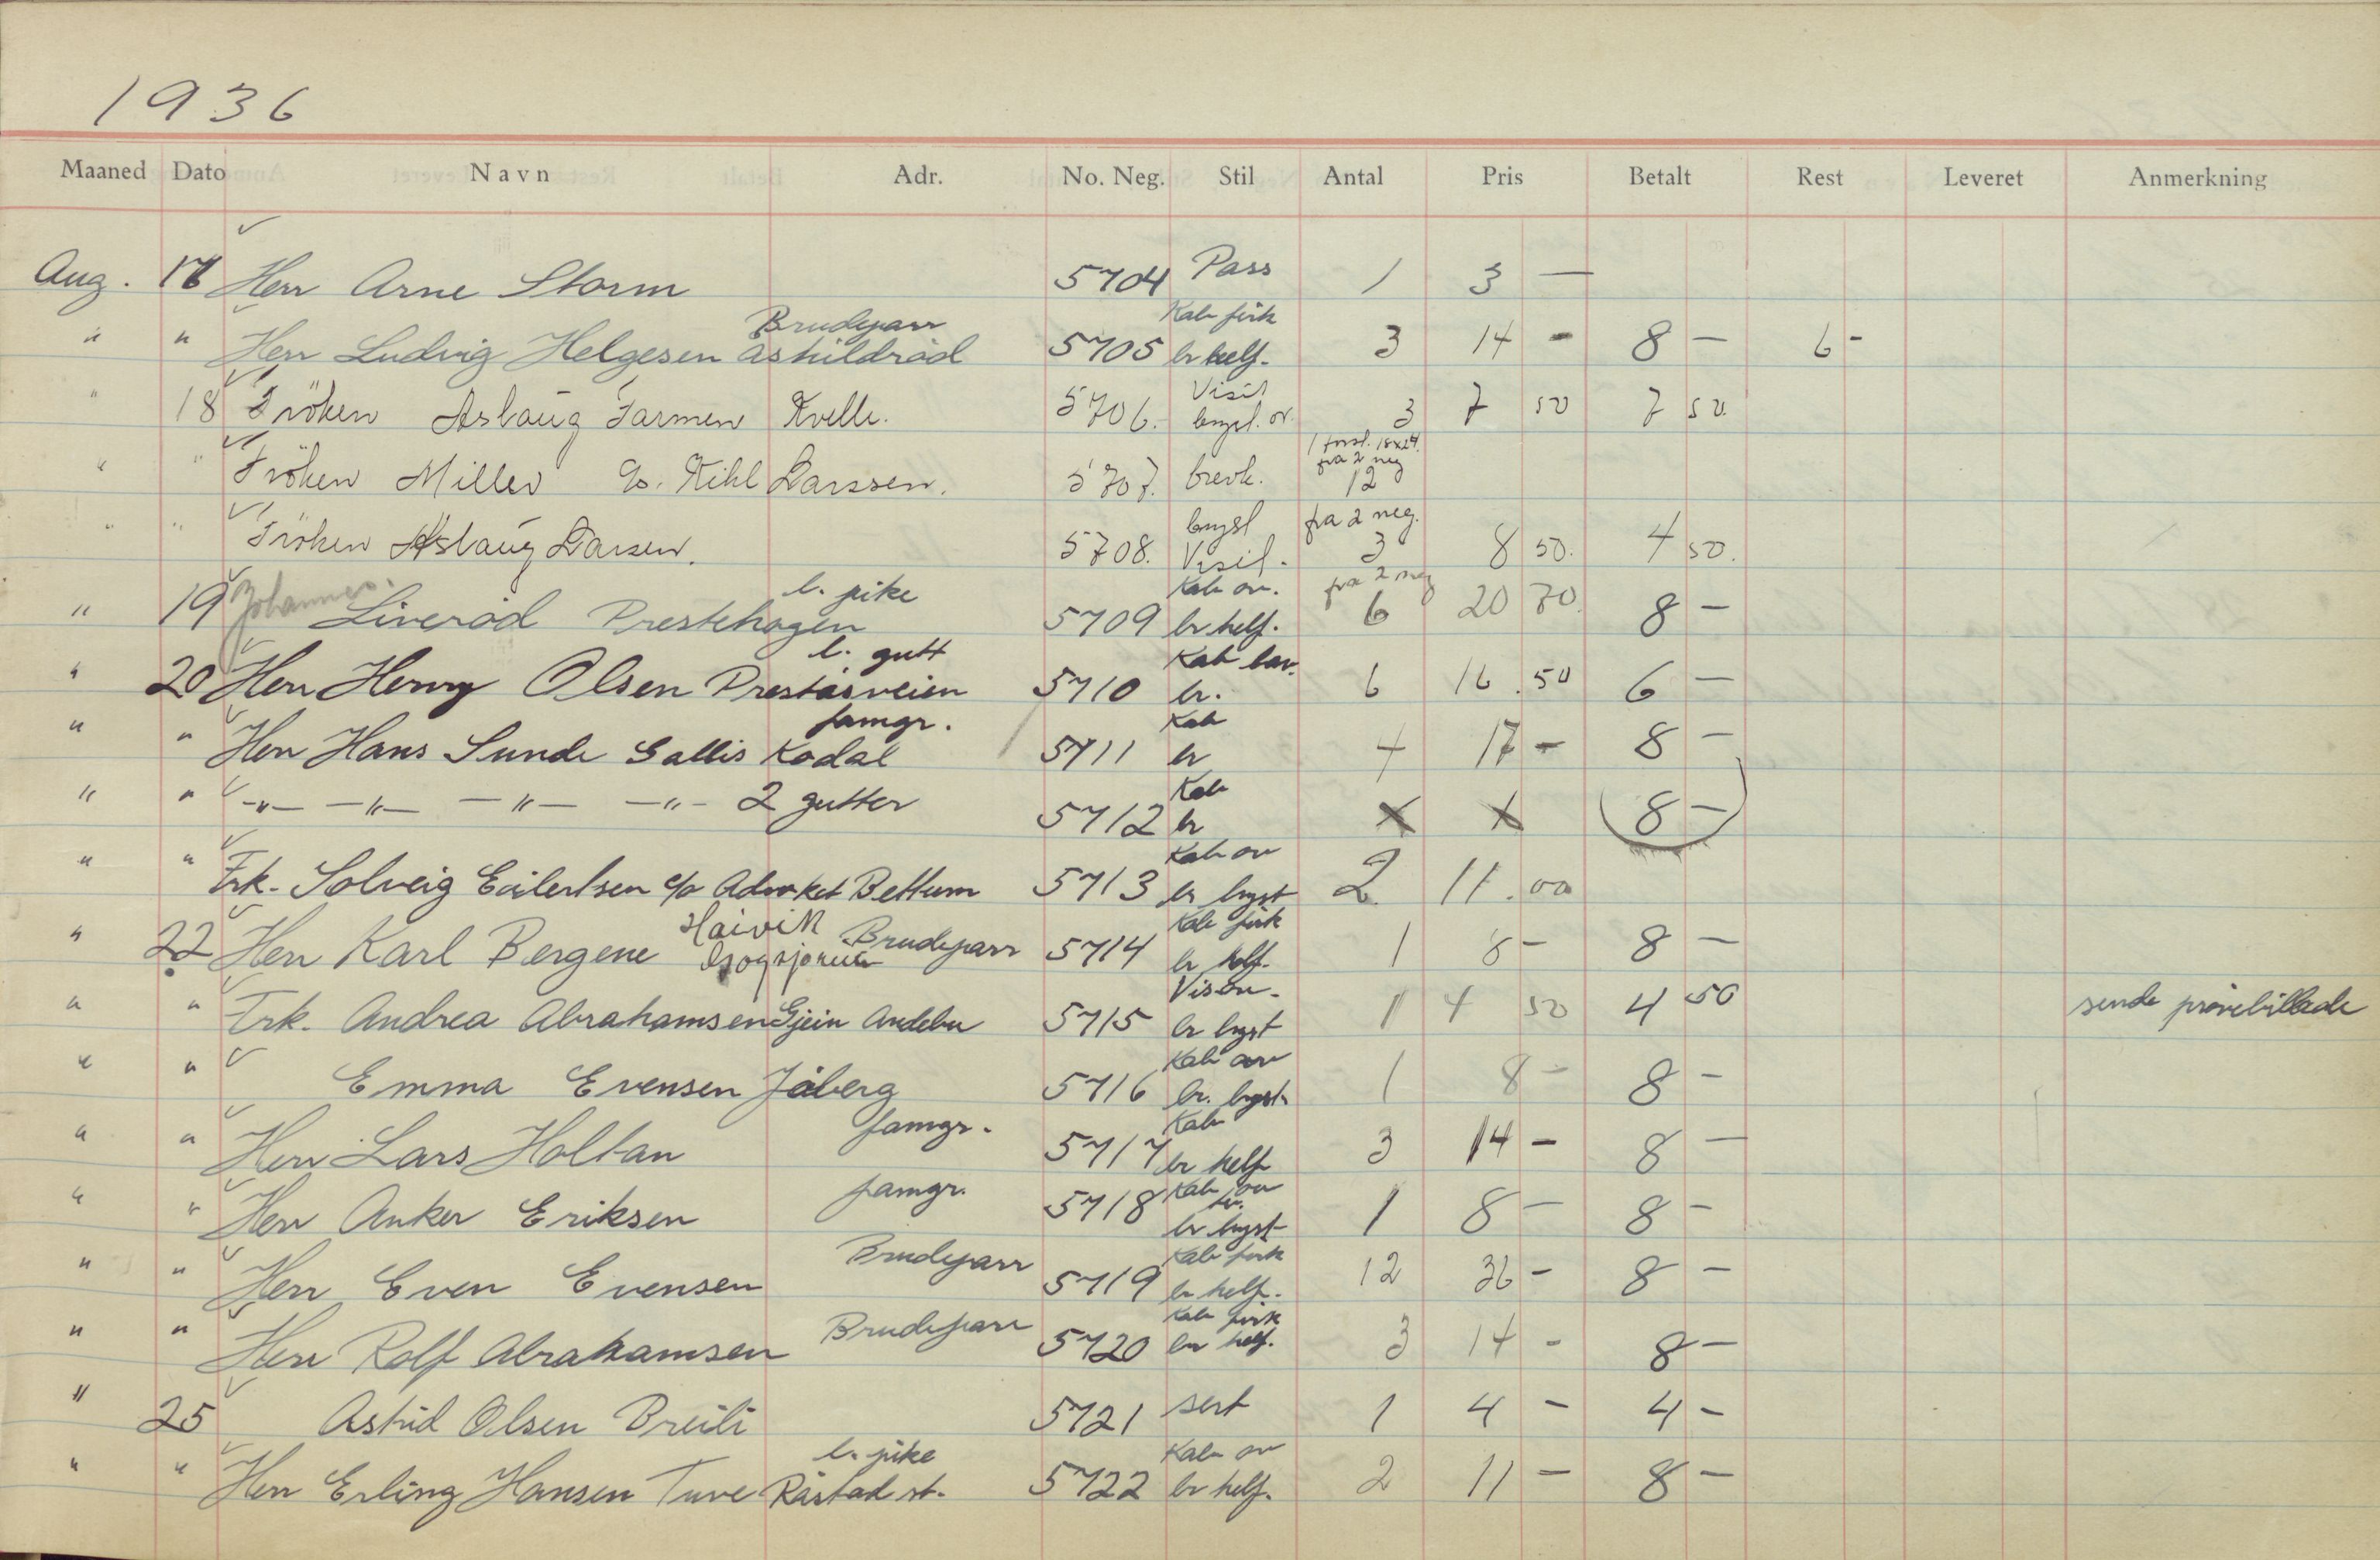 1936
Maaned Dato Navn Adr. No. Neg. Stil Antal Pris Betalt Rest Leveret Anmerkning
Aug. 17 Herr Arne Storm 5704 Pass 1 3 —
" " Herr Ludvig Helgesen Askildråd Brudeparr 5705 Kab firk br helf. 3 14 - 8 — 6 -
" 18 Fröken Aslaug Farmen Kvelle. 5706. Visit brysl. ov. 3 7 50 7 50.
" " Fröken Miller c/o. Kihl Larssen. 5707. brevk. 1 forst. 18x24. fra 2 neg 12
" " Fröken Aslaug Larsen. 5708. brysl Visit. fra 2 neg. 3 8 50. 4 50.
" 19 Johannes Liveröd Prestehagen l. pike 5709 Kab ov. br helf. fra 2 neg 6 20 70. 8 —
" 20 Herr Henry Olsen Preståsveien l. gutt 5710 Kab br. 6 16.50 6 —
" " Herr Hans Sunde Gallis Kodal famgr. 5711 Kab br 4 17 - 8 —
" " -"- -"- -"- -"- 2 gutter 5712 Kab br x x 8 —
" " Frk. Solveig Eilertsen c/o Advokat Bettum 5713 Kab ov br bryst 2 11.00
" 22 Herr Karl Bergene Haivik Brudeparr 5714 Kab firk br helf. 1 8 - 8 —
" " Frk. Andrea Abrahamsen Gjein Andebu 5715 Vis ov. br bryst 1 4 50 4 50 sende prøvebillede
" " Emma Evensen Jåberg 5716 Kab ov br. bryst. 1 8 - 8 -
" " Herr Lars Holtan famgr. 5717 Kab br helf 3 14 - 8 —
" " Herr Anker Eriksen famgr. 5718 Kab ov br bryst 1 8 — 8 -
" " Herr Even Evensen Brudeparr 5719 Kab firk br helf. 12 36 - 8 -
" " Herr Rolf Abrahamsen Brudeparr 5720 Kab firk br helf. 3 14 - 8 —
" 25 Astrid Olsen Breili 5721 sert 1 4 - 4 -
" " Herr Erling Hansen Tuve Råstad st. l. pike 5722 Kab ov br helf. 2 11 — 8 —